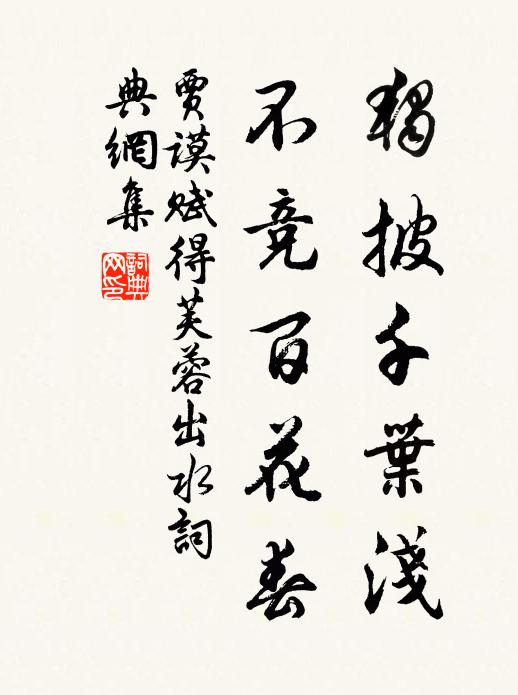 獨披千葉淺
不競百花春
賈謨賦得芙蓉出水詞
典網集
詞典網印